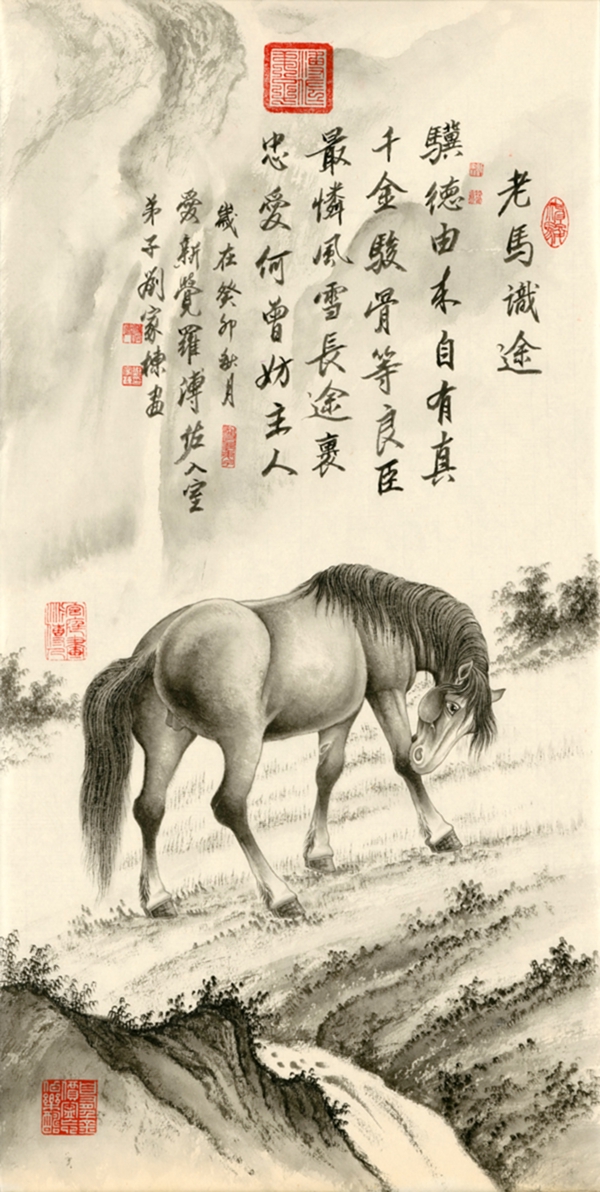 老馬識途
驥德由来自有真
千金駿骨等良臣
最憐風雪長途裏
忠愛何曾妨主人
歲在癸卯秋月
愛新覺羅溥佐入室
弟子劉家棟畫